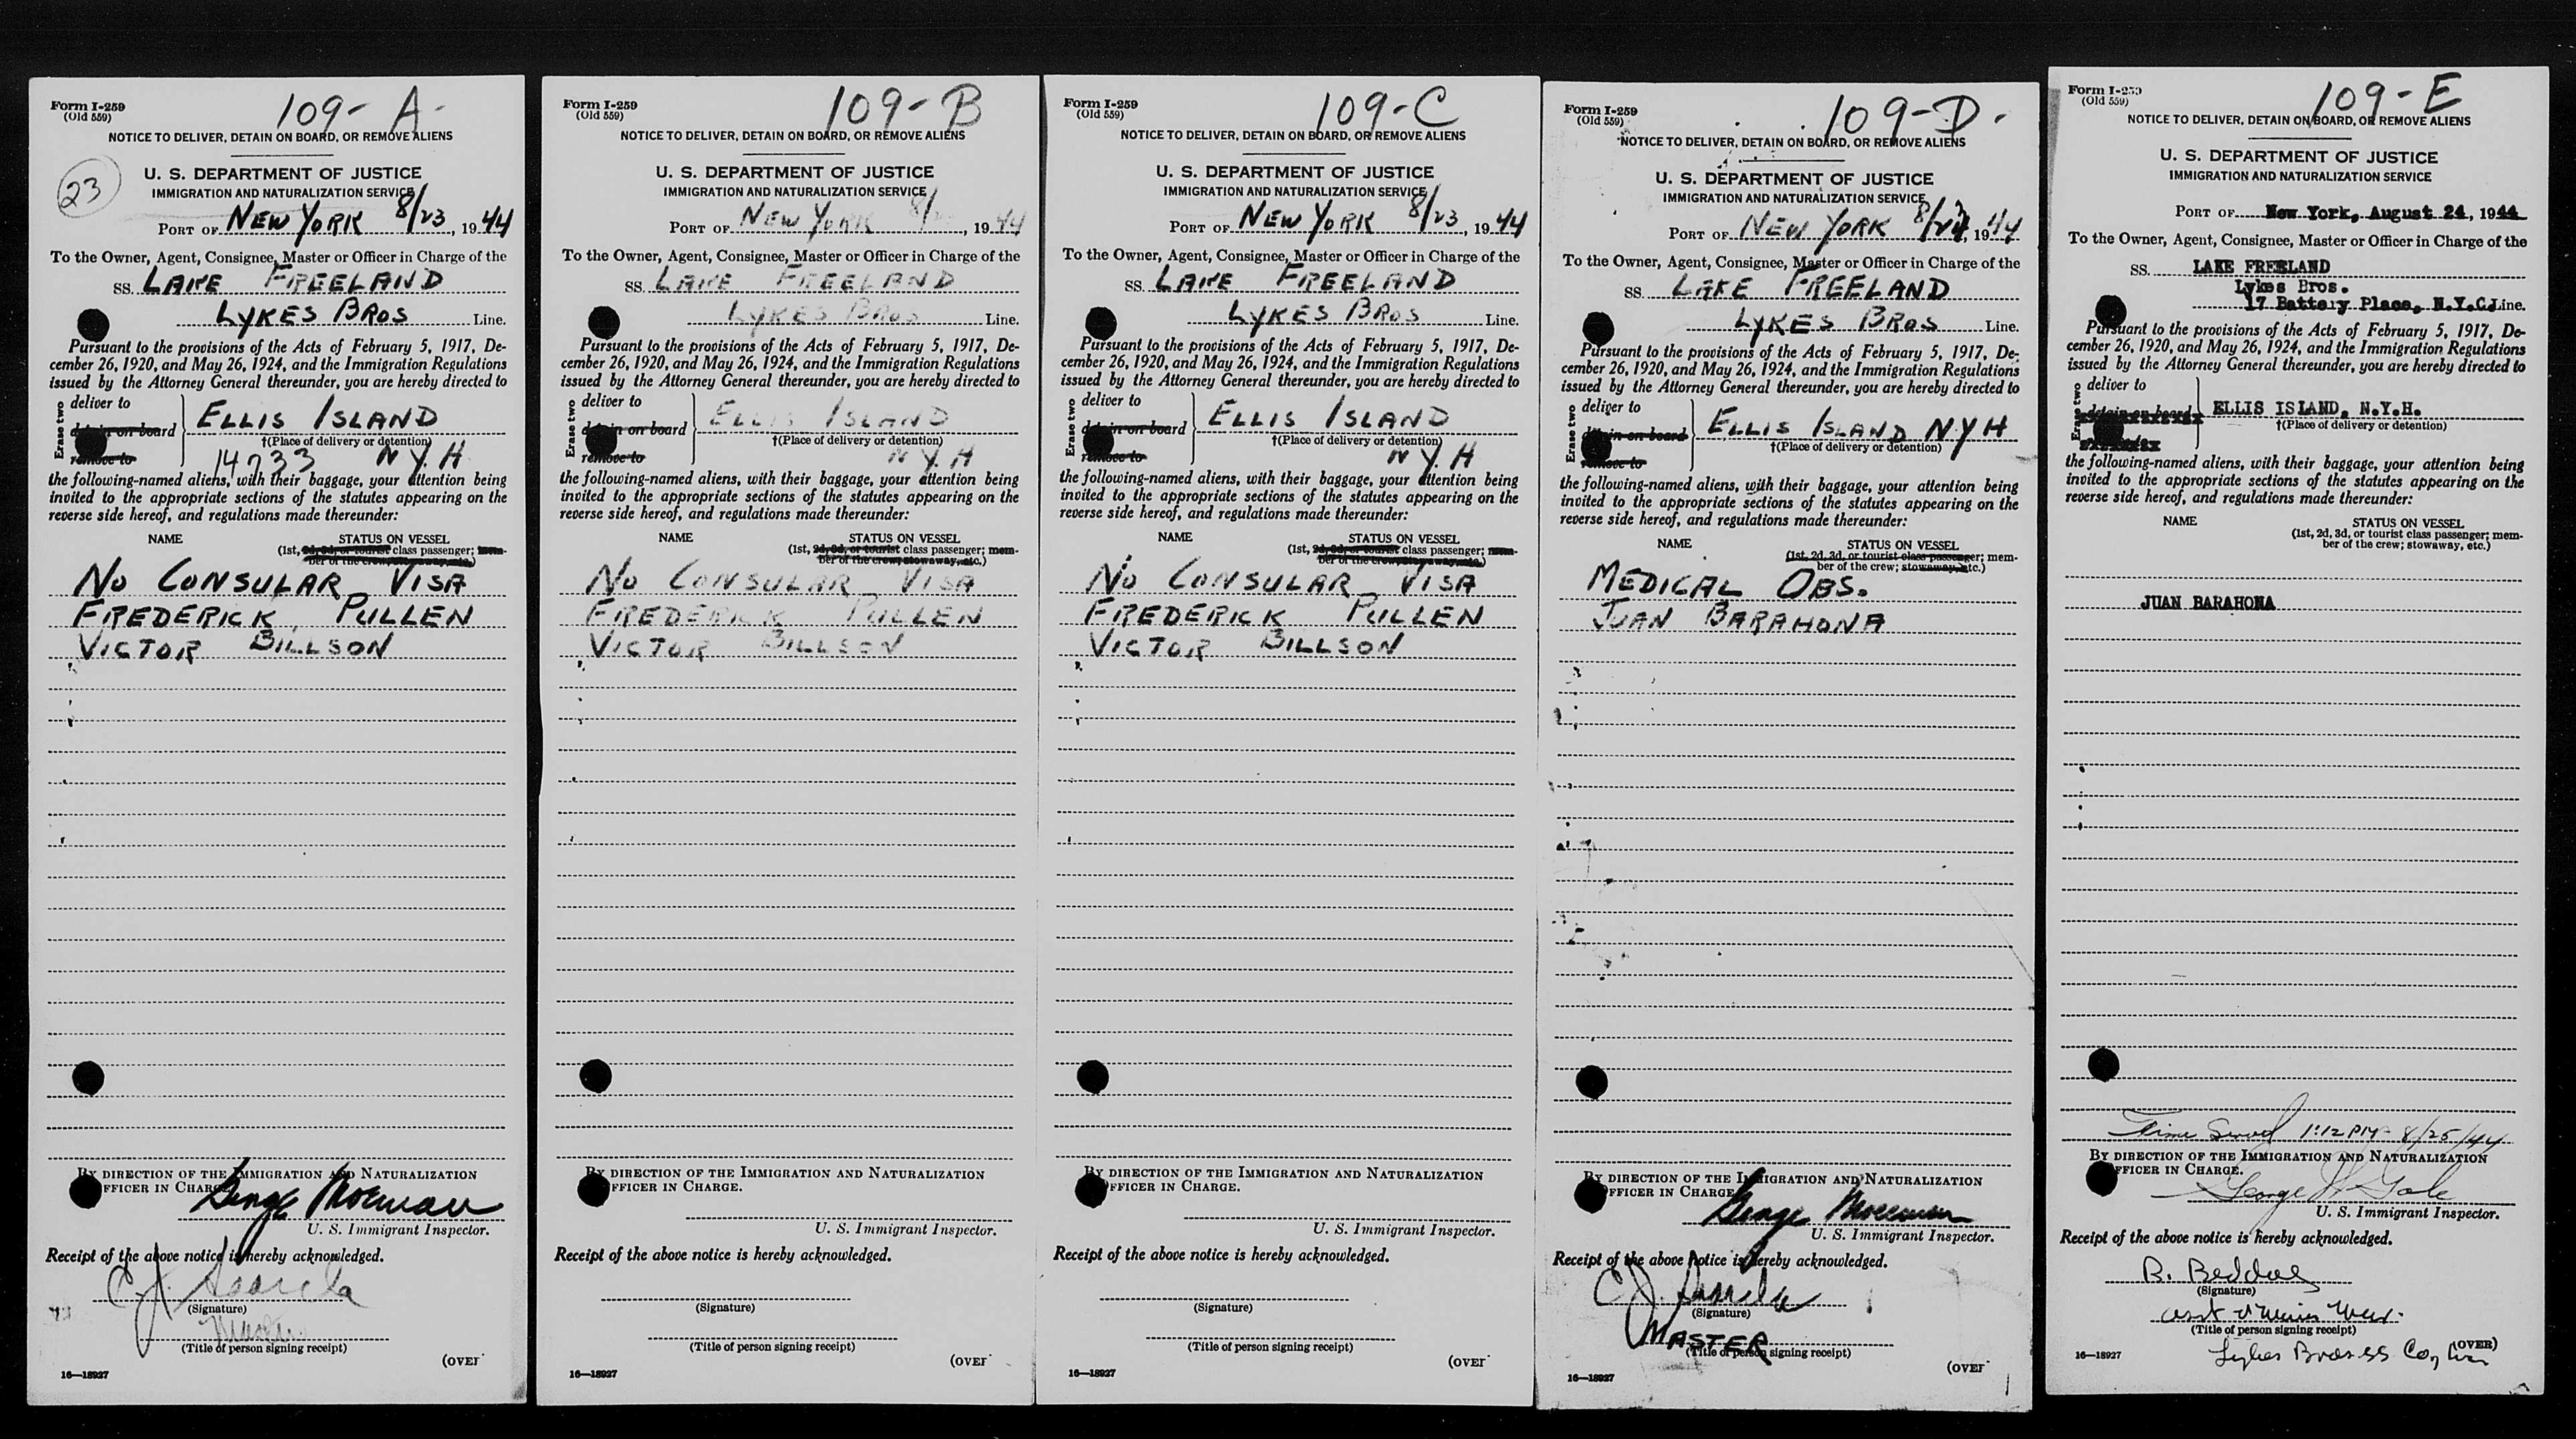 109-A-
Form I-259
(Old 559)
NOTICE TO DELIVER, DETAIN ON BOARD, OR REMOVE ALIENS
23
U. S. DEPARTMENT OF JUSTICE
IMMIGRATION AND NATURALIZATION SERVICE
PORT OF NEW YORK 8/23, 1944
To the Owner, Agent, Consignee, Master or Officer in Charge of the
SS. LAKE FREELAND
LYKES BROS Line.
Pursuant to the provisions of the Acts of February 5, 1917, De-
cember 26, 1920, and May 26, 1924, and the Immigration Regulations
issued by the Attorney General thereunder, you are hereby directed to
Erase two
deliver to
detain on board
remove to
ELLIS ISLAND
†(Place of delivery or detention)
14733 N Y. H
the following-named aliens, with their baggage, your attention being
invited to the appropriate sections of the statutes appearing on the
reverse side hereof, and regulations made thereunder:
NAME STATUS ON VESSEL
(1st, 2d, 3d, or tourist class passenger; mem-
ber of the crew; stowaway, etc.)
NO CONSULAR VISA
FREDERICK PULLEN
VICTOR BILLSON
BY DIRECTION OF THE IMMIGRATION AND NATURALIZATION
OFFICER IN CHARGE.
George
U. S. Immigrant Inspector.
Receipt of the above notice is hereby acknowledged.
C J.
(Signature)
Master
(Title of person signing receipt)
(OVER
16—18927
109-B
Form I-259
(Old 559)
NOTICE TO DELIVER, DETAIN ON BOARD, OR REMOVE ALIENS
U. S. DEPARTMENT OF JUSTICE
IMMIGRATION AND NATURALIZATION SERVICE
PORT OF NEW YORK 8/ , 1944
To the Owner, Agent, Consignee, Master or Officer in Charge of the
SS. LAKE FREELAND
LYKES BROS Line.
Pursuant to the provisions of the Acts of February 5, 1917, De-
cember 26, 1920, and May 26, 1924, and the Immigration Regulations
issued by the Attorney General thereunder, you are hereby directed to
Erase two
deliver to
detain on board
remove to
ELLIS ISLAND
†(Place of delivery or detention)
N Y. H
the following-named aliens, with their baggage, your attention being
invited to the appropriate sections of the statutes appearing on the
reverse side hereof, and regulations made thereunder:
NAME STATUS ON VESSEL
(1st, 2d, 3d, or tourist class passenger; mem-
ber of the crew; stowaway, etc.)
NO CONSULAR VISA
FREDERICK PULLEN
VICTOR BILLSON
BY DIRECTION OF THE IMMIGRATION AND NATURALIZATION
OFFICER IN CHARGE.
U. S. Immigrant Inspector.
Receipt of the above notice is hereby acknowledged.
(Signature)
(Title of person signing receipt)
(OVER
16—18927
109-C
Form I-259
(Old 559)
NOTICE TO DELIVER, DETAIN ON BOARD, OR REMOVE ALIENS
U. S. DEPARTMENT OF JUSTICE
IMMIGRATION AND NATURALIZATION SERVICE
PORT OF NEW YORK 8/23, 1944
To the Owner, Agent, Consignee, Master or Officer in Charge of the
SS. LAKE FREELAND
LYKES BROS Line.
Pursuant to the provisions of the Acts of February 5, 1917, De-
cember 26, 1920, and May 26, 1924, and the Immigration Regulations
issued by the Attorney General thereunder, you are hereby directed to
Erase two
deliver to
detain on board
remove to
ELLIS ISLAND
†(Place of delivery or detention)
N Y. H
the following-named aliens, with their baggage, your attention being
invited to the appropriate sections of the statutes appearing on the
reverse side hereof, and regulations made thereunder:
NAME STATUS ON VESSEL
(1st, 2d, 3d, or tourist class passenger; mem-
ber of the crew; stowaway, etc.)
NO CONSULAR VISA
FREDERICK PULLEN
VICTOR BILLSON
BY DIRECTION OF THE IMMIGRATION AND NATURALIZATION
OFFICER IN CHARGE.
U. S. Immigrant Inspector.
Receipt of the above notice is hereby acknowledged.
(Signature)
(Title of person signing receipt)
(OVER
16—18927
109-D-
Form I-259
(Old 559)
NOTICE TO DELIVER, DETAIN ON BOARD, OR REMOVE ALIENS
U. S. DEPARTMENT OF JUSTICE
IMMIGRATION AND NATURALIZATION SERVICE
PORT OF NEW YORK 8/23, 1944
To the Owner, Agent, Consignee, Master or Officer in Charge of the
SS. LAKE FREELAND
LYKES BROS Line.
Pursuant to the provisions of the Acts of February 5, 1917, De-
cember 26, 1920, and May 26, 1924, and the Immigration Regulations
issued by the Attorney General thereunder, you are hereby directed to
Erase two
deliver to
detain on board
remove to
ELLIS ISLAND N Y H
†(Place of delivery or detention)
the following-named aliens, with their baggage, your attention being
invited to the appropriate sections of the statutes appearing on the
reverse side hereof, and regulations made thereunder:
NAME STATUS ON VESSEL
(1st, 2d, 3d, or tourist class passenger; mem-
ber of the crew; stowaway, etc.)
MEDICAL OBS.
JUAN BARAHONA
BY DIRECTION OF THE IMMIGRATION AND NATURALIZATION
OFFICER IN CHARGE
George
U. S. Immigrant Inspector.
Receipt of the above notice is hereby acknowledged.
C J.
(Signature)
MASTER
(Title of person signing receipt)
(OVER
16—18927
109-E
Form I-259
(Old 559)
NOTICE TO DELIVER, DETAIN ON BOARD, OR REMOVE ALIENS
U. S. DEPARTMENT OF JUSTICE
IMMIGRATION AND NATURALIZATION SERVICE
PORT OF New York, August 24, 1944
To the Owner, Agent, Consignee, Master or Officer in Charge of the
SS. LAKE FREELAND
Lykes Bros.
17 Battery Place, N.Y.C. Line.
Pursuant to the provisions of the Acts of February 5, 1917, De-
cember 26, 1920, and May 26, 1924, and the Immigration Regulations
issued by the Attorney General thereunder, you are hereby directed to
Erase two
deliver to
detain on board
ELLIS ISLAND, N.Y.H.
†(Place of delivery or detention)
the following-named aliens, with their baggage, your attention being
invited to the appropriate sections of the statutes appearing on the
reverse side hereof, and regulations made thereunder:
NAME STATUS ON VESSEL
(1st, 2d, 3d, or tourist class passenger; mem-
ber of the crew; stowaway, etc.)
JUAN BARAHONA
Time Served 1:12 PM 8/25/44
BY DIRECTION OF THE IMMIGRATION AND NATURALIZATION
OFFICER IN CHARGE.
George W Gale
U. S. Immigrant Inspector.
Receipt of the above notice is hereby acknowledged.
B.
(Signature)
asst
(Title of person signing receipt)
(OVER)
Lykes Bros SS Co, Inc
16—18927